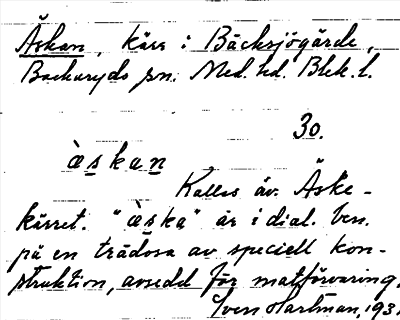 Äskan, kärr i Bäcksjögärde,
Backaryds sn. Med. hd. Blek. l.
30.
àskan
Kallas äv. Äske-
kärret. "àska" är i dial. ben.
på en trädosa av speciell kon-
struktion, avsedd för matförvaring.
Sven Hartman, 193